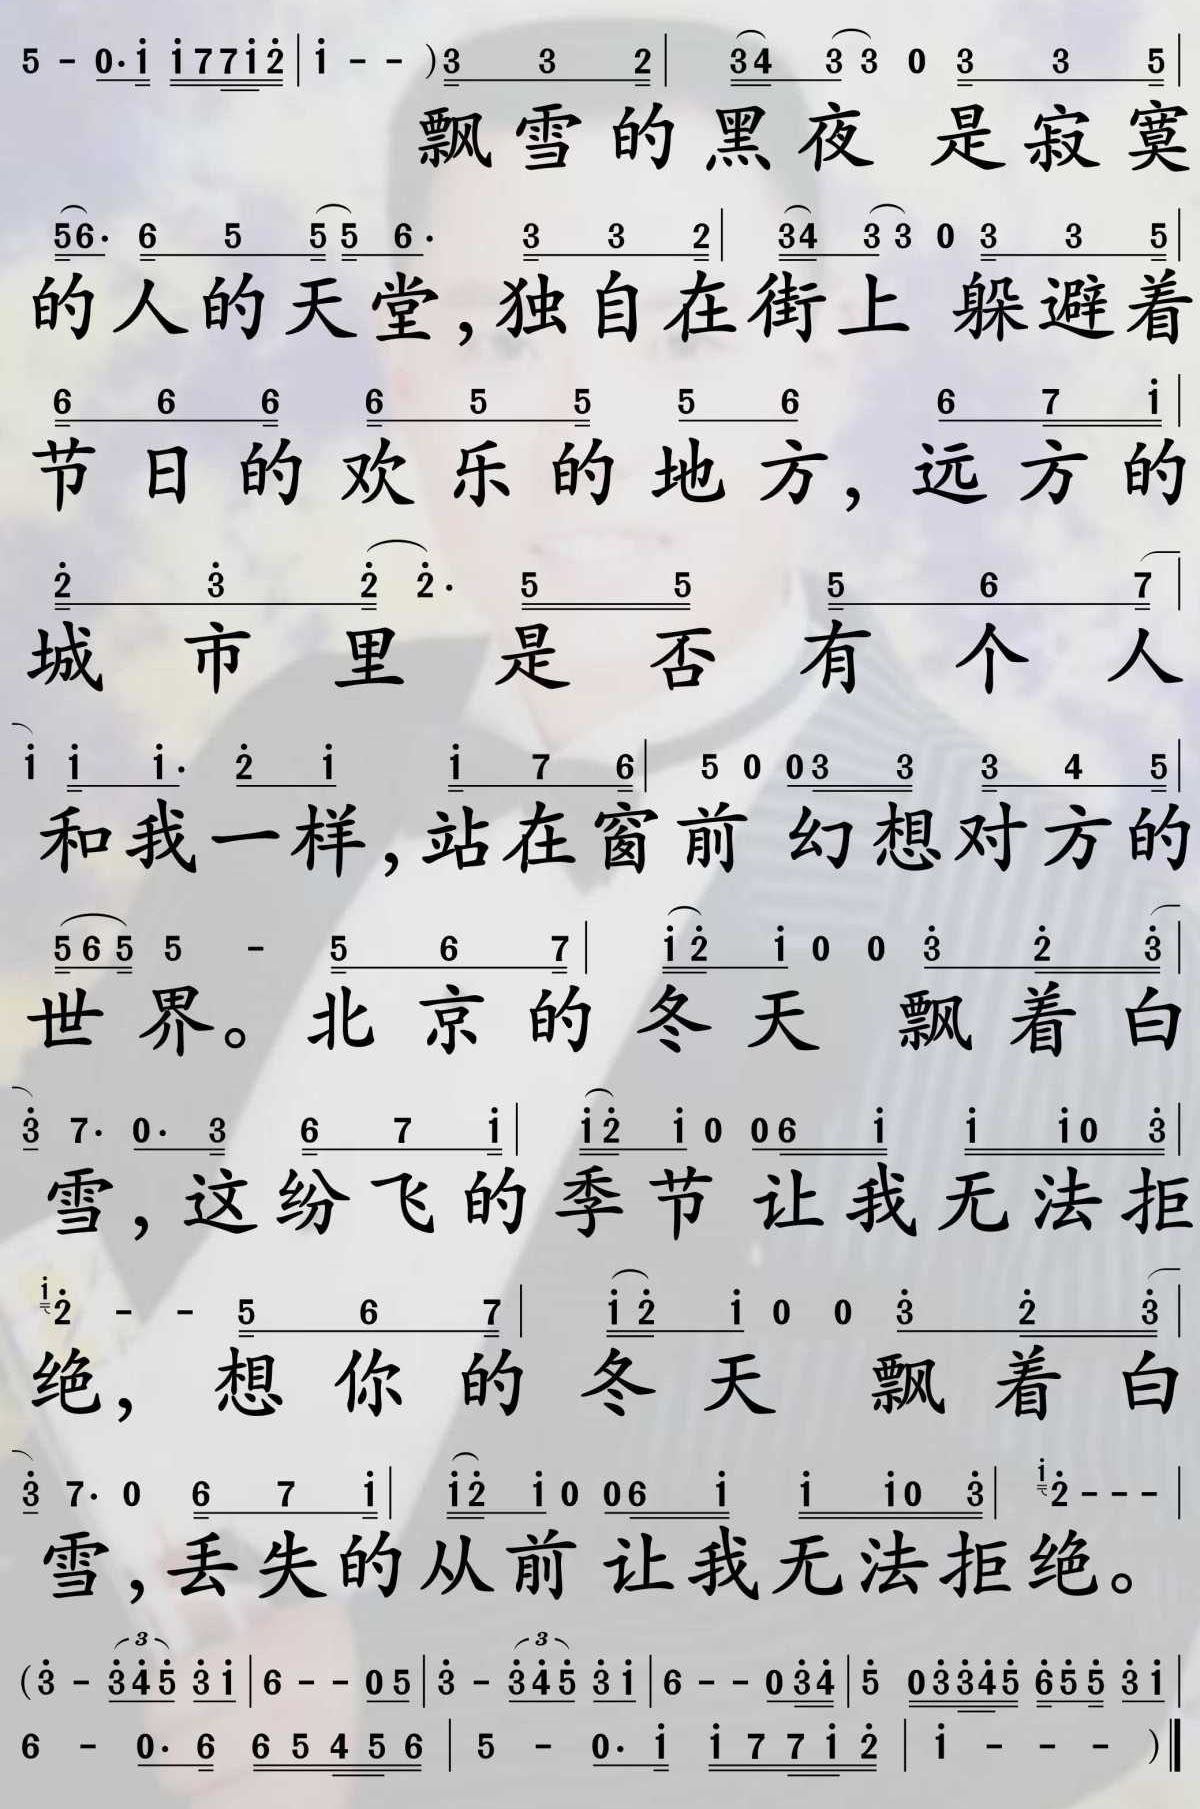 5 - 0·i i77i2|i - - )3 3 2|34 33 0 3 3 5|
飘雪的黑夜 是寂寞
56· 6 5 55 6· 3 3 2|34 33 0 3 3 5|
的人的天堂,独自在街上 躲避着
6 6 6 6 5 5 5 6 6 7 i|
节日的欢乐的地方,远方的
2 3 2 2· 5 5 5 6 7|
城市里是否有个人
i i i· 2 i i 7 6|5 0 03 3 3 4 5|
和我一样,站在窗前 幻想对方的
565 5 - 5 6 7|i2 i 0 0 3 2 3|
世界。北京的冬天 飘着白
3 7· 0· 3 6 7 i|i2 i 0 06 i i i0 3|
雪,这纷飞的季节 让我无法拒
i2 - - 5 6 7|i2 i 0 0 3 2 3|
绝,想你的冬天 飘着白
3 7· 0 6 7 i|i2 i 0 06 i i i0 3|i2 - - -|
雪,丢失的从前 让我无法拒绝。
(3 - 345 3i|6 - - 05|3 - 345 3i|6 - - 034|5 03345 655 3i|
6 - 0· 6 65456|5 - 0· i i77i2|i - - - )‖